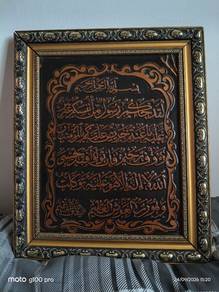 بسم الله الرحمن الرحيم
لقد جاءكم رسول من أنفسكم عزيز
عليه ما عنتم حريص عليكم بالمؤمنين
رءوف رحيم فإن تولوا فقل حسبي
الله لا إله إلا هو عليه توكلت
وهو رب العرش العظيم
moto g100 pro